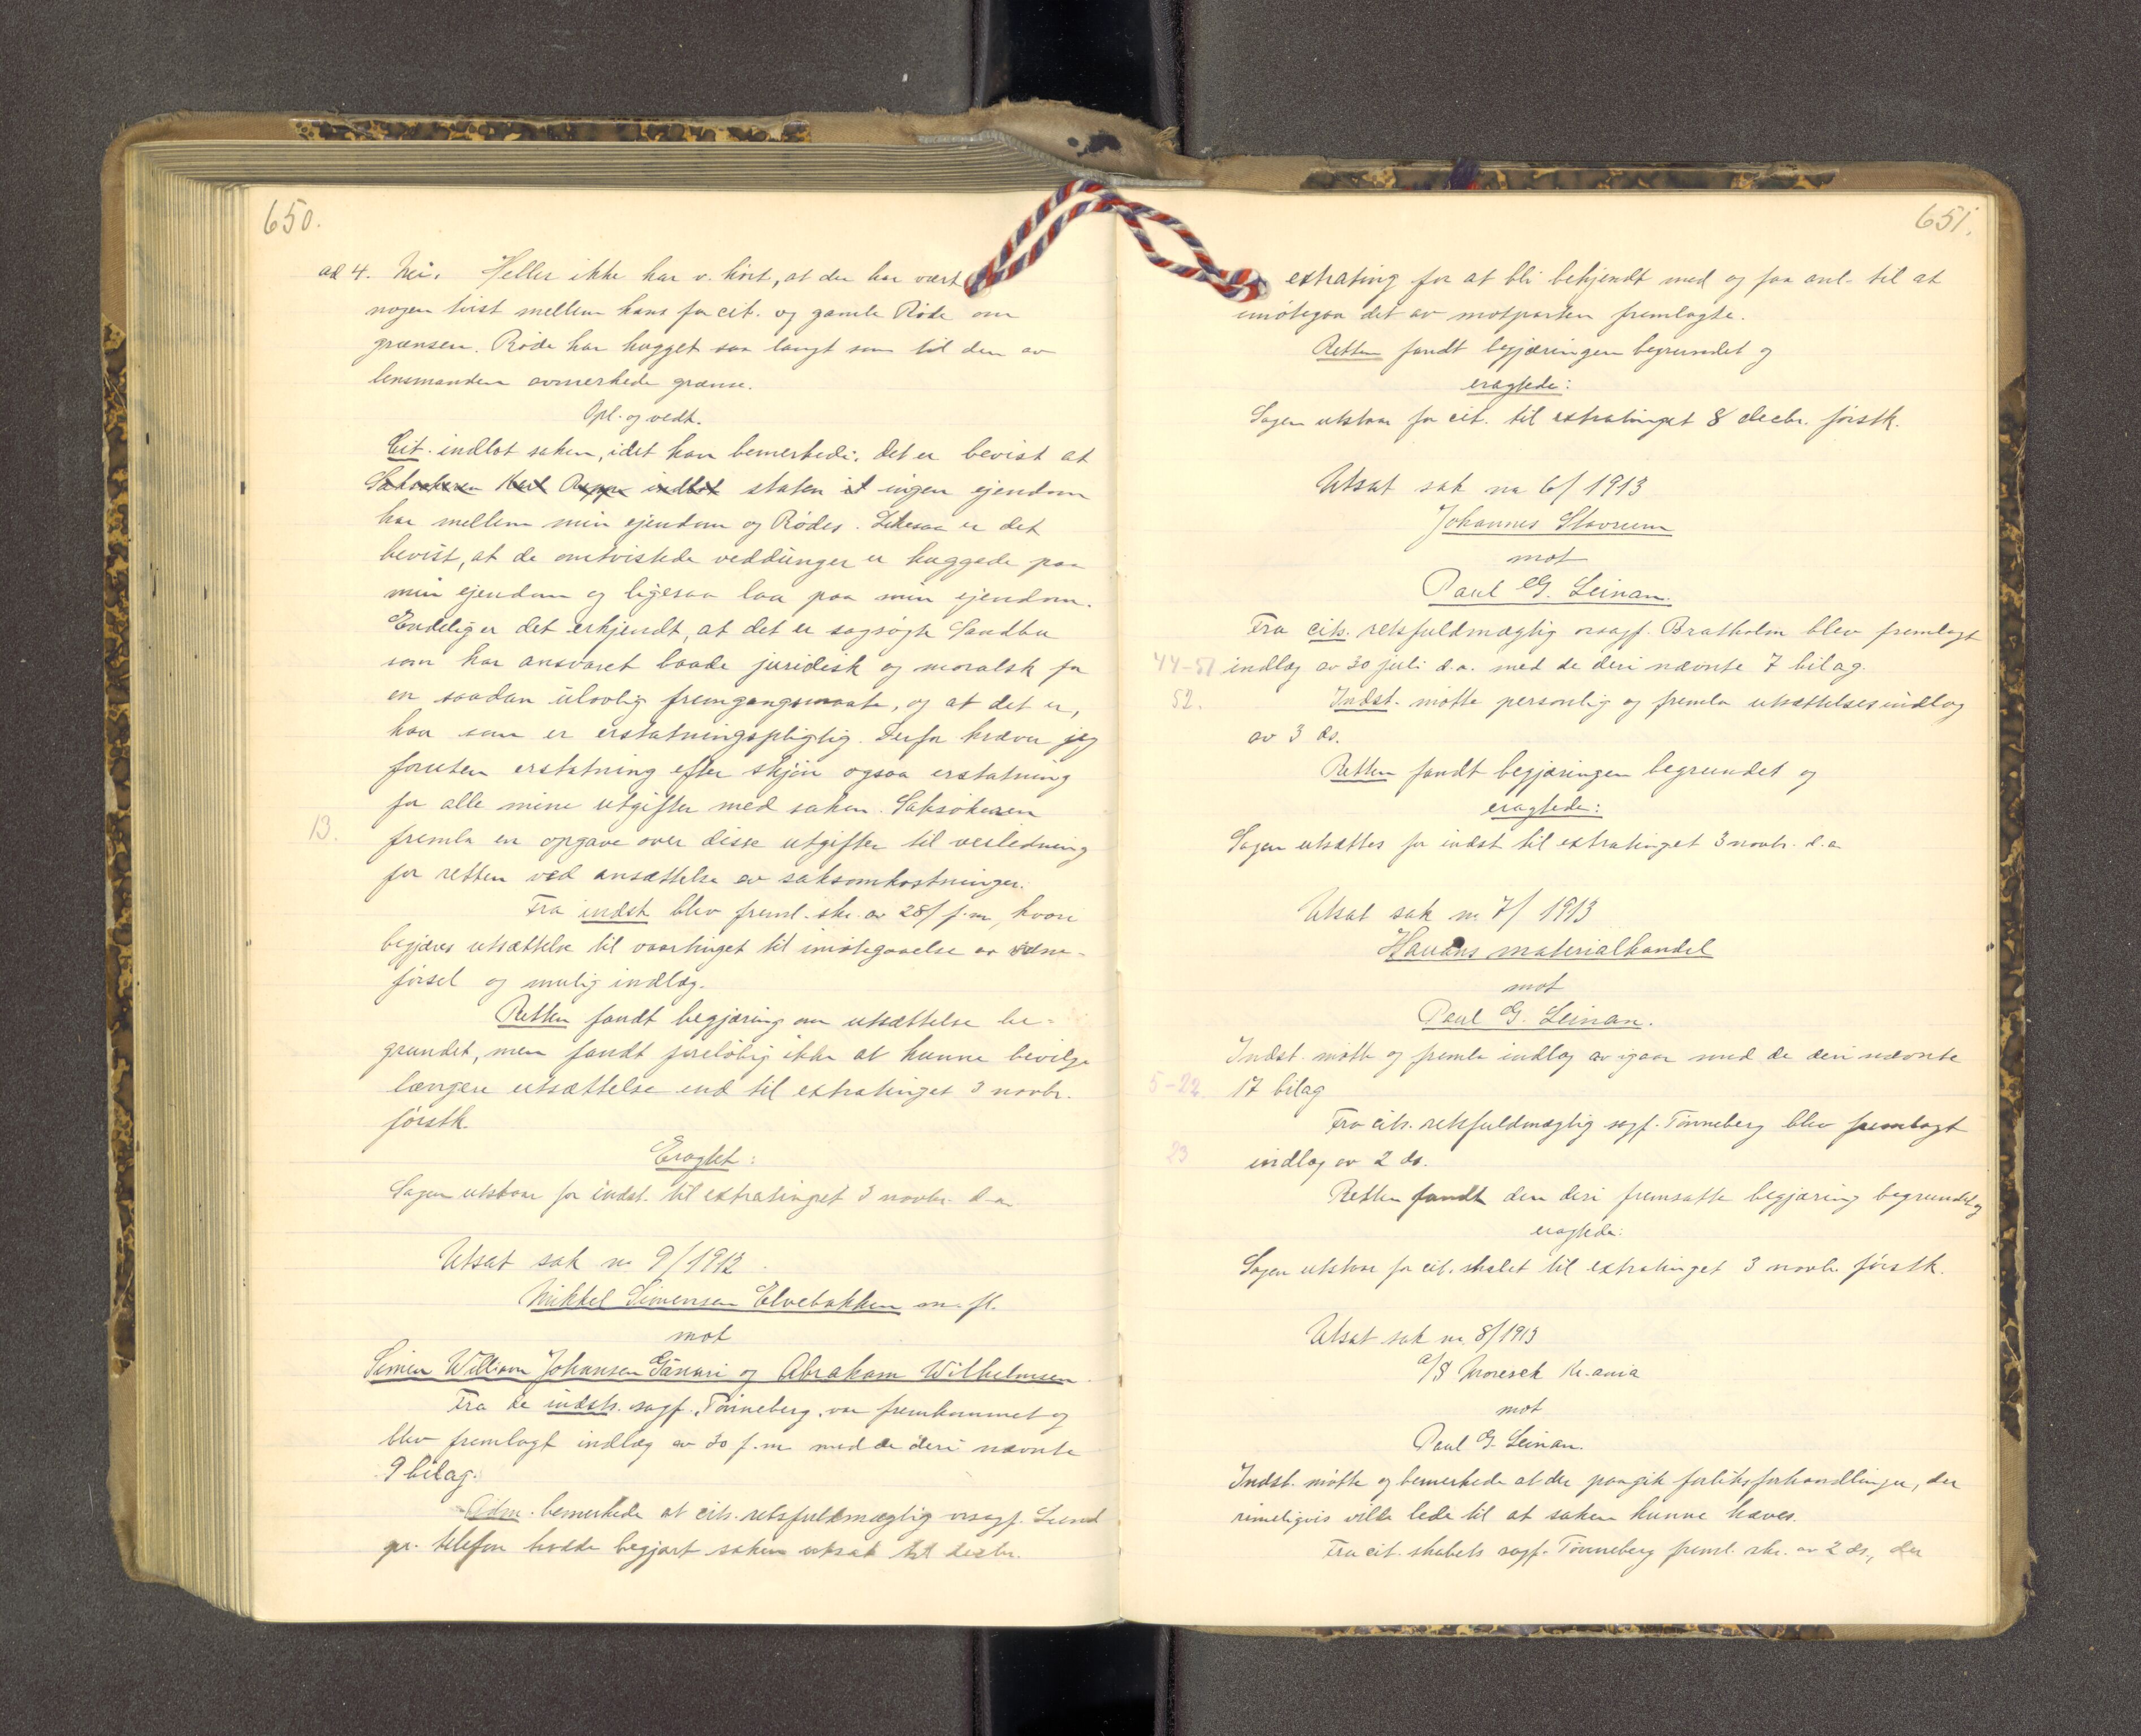 650.
ad 4. Nei. Heller ikke har v. hört, at der har vært
nogen tvist mellem hans far cit. og gamle Röde om
grænsen. Röde har hugget saa langt som til den av
lensmanden avmerkede grænse.
Opl. og vedt.
Cit. indlot saken, idet han bemerkede: det er bevist at
Saksökeren Karl indlot staten et ingen ejendom
har mellem min ejendom og Rödes. Likesaa er det
bevist, at de omtvistede veddünger er huggede paa
min ejendom og ligesaa laa paa min ejendom.
Endelig er det erkjendt, at det er sagsögte Sandbu
som har ansvaret baade juridisk og moralsk for
en saadan ulovlig fremgangsmaate, og at det er,
han som er erstatningspligtig. Derfor kræver jeg
foruten erstatning efter skjön ogsaa erstatning
for alle mine utgifter med saken. Saksökeren
13. fremla en opgave over disse utgifter til veiledning
for retten ved ansættelse av saksomkostninger.
Fra indst. blev freml. skr. av 28/ f.m, hvori
begjæres utsættelse til vaartinget til imötegaaelse av vidne-
försel og mulig indlæg.
Retten fandt begjæring om utsættelse be-
grundet, men fandt forelöbig ikke at kunne bevilge
længere utsættelse end til extratinget 3 novbr.
förstk.
Eragtet:
Sagen utstaar for indst. til extratinget 3 novbr. d.a.
Utsat sak nr. 9/1912.
Mikkel Simensen Elvebakken m. fl.
mot
Simen William Johansen Gänari og Abraham Wilhelmsen.
Fra de indst. sagf. Tönneberg, var fremkommet og
blev fremlagt indlæg av 30 f.m. med de deri nævnte
9 bilag.
Adm. bemerkede at cits. retsfuldmægtig orsagf. Lund
pr. telefon hadde begjært saken utsat til decbr.
651.
extrating for at bli bekjendt med og faa anl. til at
imötegaa det av motparten fremlagte.
Retten fandt begjæringen begrundet og
eragtede:
Sagen utstaar for cit. til extratinget 8 decbr. förstk.
Utsat sak nr 6/1913
Johannes Stavrum
mot
Paul G. Leinan.
Fra cits. retsfuldmægtig orsagf. Bratholm blev fremlagt
44-51 indlæg av 30 juli d.a. med de deri nævnte 7 bilag.
52. Indst. mötte personlig og fremla utsættelsesindlæg
av 3 ds.
Retten fandt begjæringen begrundet og
eragtede:
Sagen utsættes for indst til extratinget 3 novbr. d.a
Utsat sak nr. 7/1913
Havans materialhandel
mot
Paul G. Leinan.
Indst. mötte og fremla indlæg av igaar med de deri nævnte
5-22 17 bilag
Fra cits. retsfuldmægtig sagf. Tönneberg blev fremlagt
23 indlæg av 2 ds.
Retten fandt den deri fremsatte begjæring begrundet og
eragtede:
Sagen utstaar for cit. skabet til extratinget 3 novbr. förstk.
Utsat sak nr. 8/1913
A/S Kr.ania
mot
Paul G. Leinan.
Indst. mötte og bemerkede at der paagik forliksforhandlinger, der
rimeligvis vilde lede til at saken kunne hæves.
Fra cit. skabets sagf. Tönneberg freml. skr. av 2 ds, der